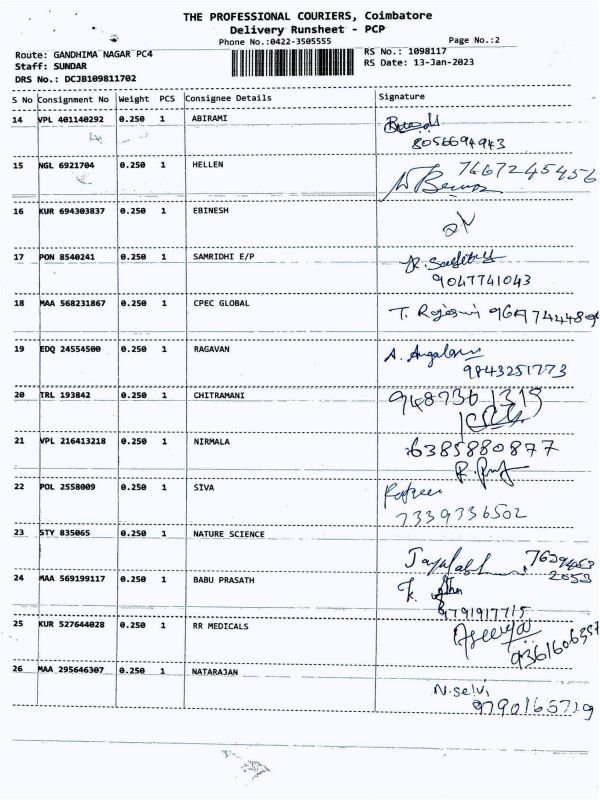 THE PROFESSIONAL COURIERS, Coimbatore
Delivery Runsheet - PCP
Phone No.:0422-3505555 Page No.:2
Route: GANDHIMA NAGAR PC4 RS No.: 1098117
Staff: SUNDAR RS Date: 13-Jan-2023
DRS No.: DCJB109811702
S No Consignment No Weight PCS Consignee Details Signature
14 VPL 401140292 0.250 1 ABIRAMI
8056694943
15 NGL 6921704 0.250 1 HELLEN 7667245456
16 KUR 694303837 0.250 1 EBINESH
17 PON 8540241 0.250 1 SAMRIDHI E/P
9047741043
18 MAA 568231867 0.250 1 CPEC GLOBAL
19 EDQ 24554500 0.250 1 RAGAVAN
9843251773
20 TRL 193842 0.250 1 CHITRAMANI
21 VPL 216413218 0.250 1 NIRMALA 6385880877
22 POL 2558009 0.250 1 SIVA
7339736502
23 STY 835065 0.250 1 NATURE SCIENCE
24 MAA 569199117 0.250 1 BABU PRASATH
9791917715
25 KUR 527644028 0.250 1 RR MEDICALS
26 MAA 295646307 0.250 1 NATARAJAN
N.selvi
9790165719